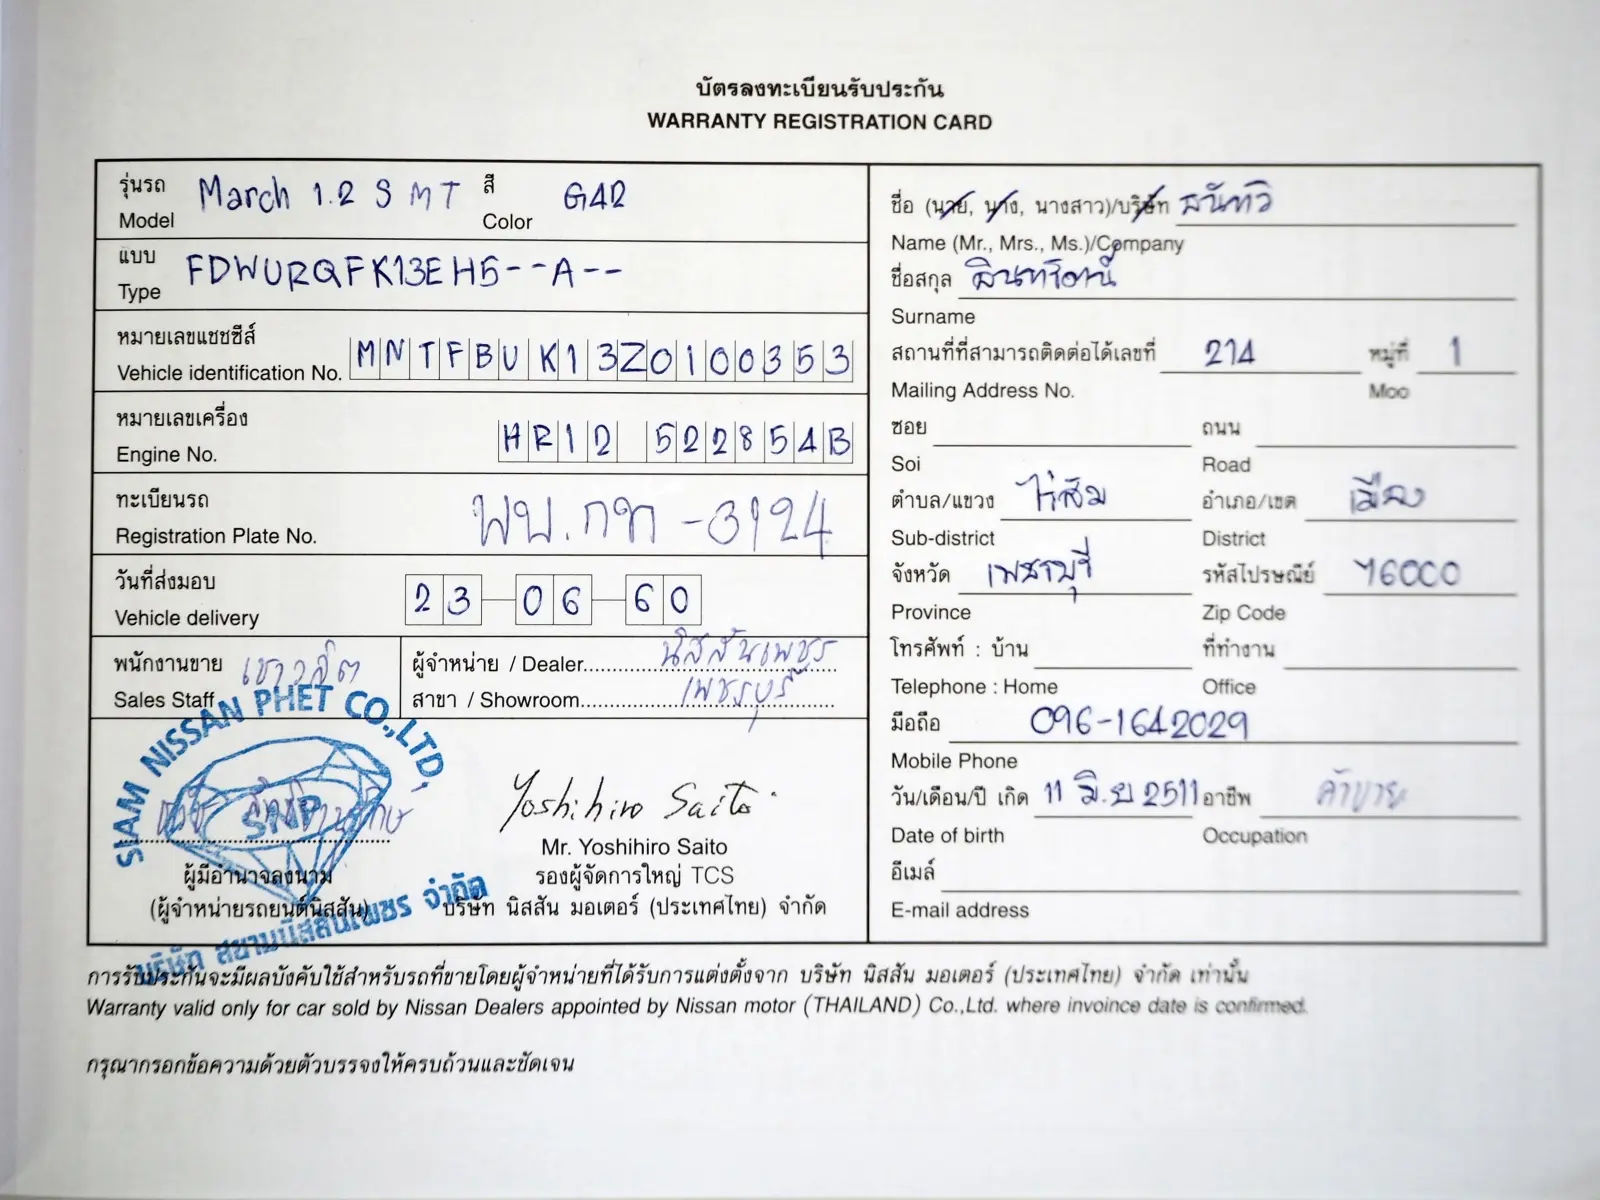 บัตรลงทะเบียนรับประกัน
WARRANTY REGISTRATION CARD
รุ่นรถ March 1.2 S MT สี G42
Model Color
แบบ FDWURQFK13EH5--A--
Type
หมายเลขแชชซีส์
Vehicle identification No. MNTFBUK13Z0100353
หมายเลขเครื่อง
Engine No. HR12 522854B
ทะเบียนรถ
Registration Plate No. พบ.กท -3124
วันที่ส่งมอบ
Vehicle delivery 23-06-60
พนักงานขาย เชาวลิต
Sales Staff
ผู้จำหน่าย / Dealer นิสสันเพชร
สาขา / Showroom เพชรบุรี
SIAM NISSAN PHET CO.,LTD.
SNP
บริษัท สยามนิสสันเพชร จำกัด
ผู้มีอำนาจลงนาม
(ผู้จำหน่ายรถยนต์นิสสัน)
Yoshihiro Saito
Mr. Yoshihiro Saito
รองผู้จัดการใหญ่ TCS
บริษัท นิสสัน มอเตอร์ (ประเทศไทย) จำกัด
ชื่อ (นาย, นาง, นางสาว)/บริษัท
Name (Mr., Mrs., Ms.)/Company
ชื่อสกุล
Surname
สถานที่ที่สามารถติดต่อได้เลขที่ 214 หมู่ที่ 1
Mailing Address No. Moo
ซอย ถนน
Soi Road
ตำบล/แขวง ไร่ส้ม อำเภอ/เขต เมือง
Sub-district District
จังหวัด เพชรบุรี รหัสไปรษณีย์ 76000
Province Zip Code
โทรศัพท์ : บ้าน ที่ทำงาน
Telephone : Home Office
มือถือ 096-1642029
Mobile Phone
วัน/เดือน/ปี เกิด 11 มิ.ย 2511 อาชีพ ค้าขาย
Date of birth Occupation
อีเมล์
E-mail address
การรับประกันจะมีผลบังคับใช้สำหรับรถที่ขายโดยผู้จำหน่ายที่ได้รับการแต่งตั้งจาก บริษัท นิสสัน มอเตอร์ (ประเทศไทย) จำกัด เท่านั้น
Warranty valid only for car sold by Nissan Dealers appointed by Nissan motor (THAILAND) Co.,Ltd. where invoince date is confirmed.
กรุณากรอกข้อความด้วยตัวบรรจงให้ครบถ้วนและชัดเจน